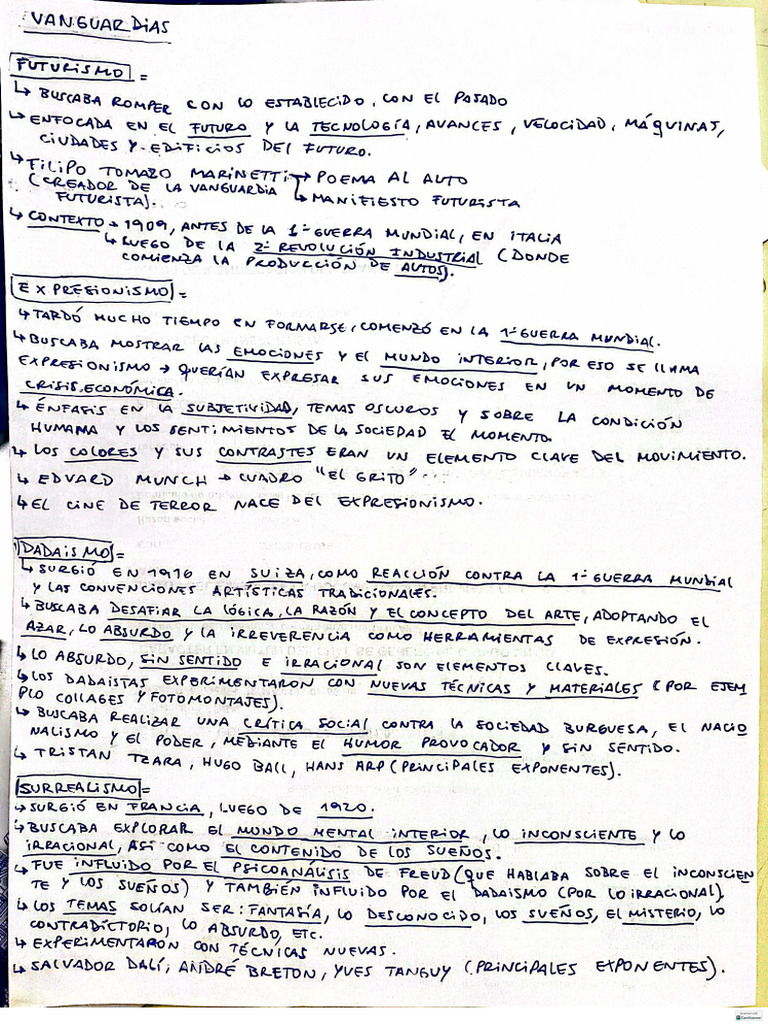 VANGUARDIAS
FUTURISMO =
↳ BUSCABA ROMPER CON LO ESTABLECIDO, CON EL PASADO
↳ ENFOCADA EN EL FUTURO Y LA TECNOLOGÍA, AVANCES, VELOCIDAD, MÁQUINAS,
CIUDADES Y EDIFICIOS DEL FUTURO.
↳ FILIPO TOMAZO MARINETTI → POEMA AL AUTO
(CREADOR DE LA VANGUARDIA ↳ MANIFIESTO FUTURISTA
FUTURISTA).
↳ CONTEXTO → 1909, ANTES DE LA 1° GUERRA MUNDIAL, EN ITALIA
↳ LUEGO DE LA 2° REVOLUCIÓN INDUSTRIAL (DONDE
COMIENZA LA PRODUCCIÓN DE AUTOS).
EXPRESIONISMO =
↳ TARDÓ MUCHO TIEMPO EN FORMARSE, COMENZÓ EN LA 1° GUERRA MUNDIAL.
↳ BUSCABA MOSTRAR LAS EMOCIONES Y EL MUNDO INTERIOR, POR ESO SE LLAMA
EXPRESIONISMO → QUERÍAN EXPRESAR SUS EMOCIONES EN UN MOMENTO DE
CRISIS ECONÓMICA.
↳ ÉNFASIS EN LA SUBJETIVIDAD, TEMAS OSCUROS Y SOBRE LA CONDICIÓN
HUMANA Y LOS SENTIMIENTOS DE LA SOCIEDAD EL MOMENTO.
↳ LOS COLORES Y SUS CONTRASTES ERAN UN ELEMENTO CLAVE DEL MOVIMIENTO.
↳ EDVARD MUNCH → CUADRO "EL GRITO"
↳ EL CINE DE TERROR NACE DEL EXPRESIONISMO.
DADAISMO =
↳ SURGIÓ EN 1916 EN SUIZA, COMO REACCIÓN CONTRA LA 1° GUERRA MUNDIAL
Y LAS CONVENCIONES ARTÍSTICAS TRADICIONALES.
↳ BUSCABA DESAFIAR LA LÓGICA, LA RAZÓN Y EL CONCEPTO DEL ARTE, ADOPTANDO EL
AZAR, LO ABSURDO Y LA IRREVERENCIA COMO HERRAMIENTAS DE EXPRESIÓN.
↳ LO ABSURDO, SIN SENTIDO E IRRACIONAL SON ELEMENTOS CLAVES.
↳ LOS DADAISTAS EXPERIMENTARON CON NUEVAS TÉCNICAS Y MATERIALES (POR EJEM
PLO COLLAGES Y FOTOMONTAJES).
↳ BUSCABA REALIZAR UNA CRÍTICA SOCIAL CONTRA LA SOCIEDAD BURGUESA, EL NACIO
NALISMO Y EL PODER, MEDIANTE EL HUMOR PROVOCADOR Y SIN SENTIDO.
↳ TRISTAN TZARA, HUGO BALL, HANS ARP (PRINCIPALES EXPONENTES).
SURREALISMO =
↳ SURGIÓ EN FRANCIA, LUEGO DE 1920.
↳ BUSCABA EXPLORAR EL MUNDO MENTAL INTERIOR, LO INCONSCIENTE Y LO
IRRACIONAL, ASÍ COMO EL CONTENIDO DE LOS SUEÑOS.
↳ FUE INFLUIDO POR EL PSICOANÁLISIS DE FREUD (QUE HABLABA SOBRE EL INCONSCIEN
TE Y LOS SUEÑOS) Y TAMBIÉN INFLUIDO POR EL DADAISMO (POR LO IRRACIONAL).
↳ LOS TEMAS SOLÍAN SER: FANTASÍA, LO DESCONOCIDO, LOS SUEÑOS, EL MISTERIO, LO
CONTRADICTORIO, LO ABSURDO, ETC.
↳ EXPERIMENTARON CON TÉCNICAS NUEVAS.
↳ SALVADOR DALÍ, ANDRÉ BRETON, YVES TANGUY (PRINCIPALES EXPONENTES).
CamScanner